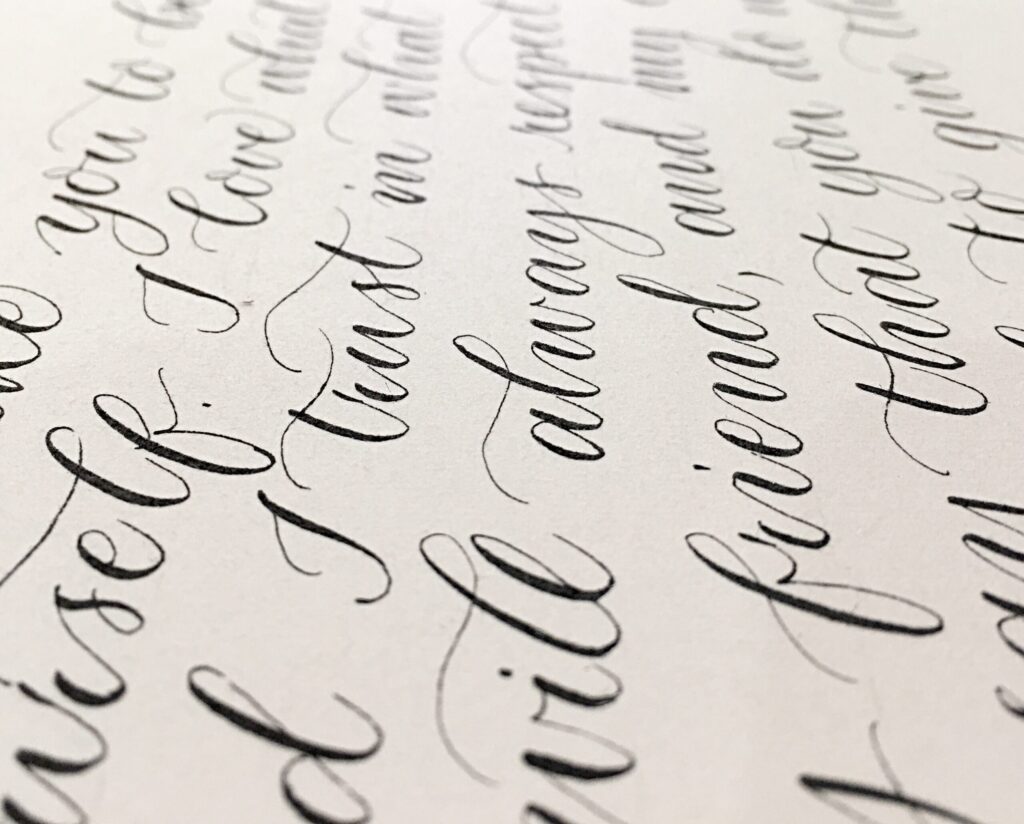 you to
I love what
I trust in what
will always respect
friend, and my
that you do
to give